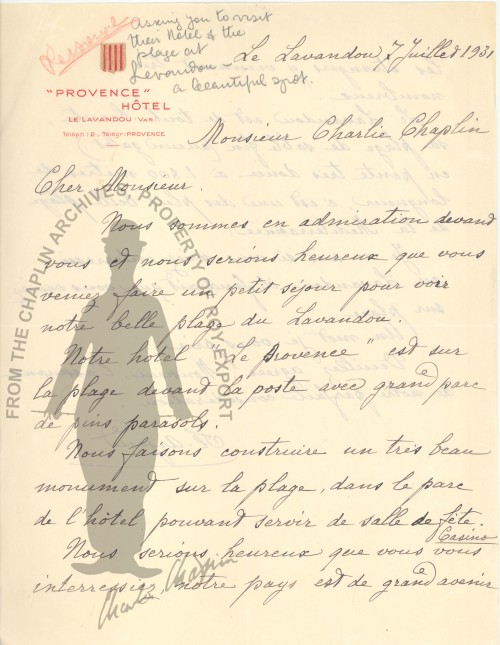 Personal
Asking you to visit
their Hotel & the
plage at
Levandou –
a beautiful spot.
"PROVENCE"
HÔTEL
LE LAVANDOU (VAR)
Téléph: 2 _ Télégr: PROVENCE
Le Lavandou 7 Juillet 1931
Monsieur Charlie Chaplin
Cher Monsieur.
Nous sommes en admiration devand
vous et nous serions heureux que vous
veniez faire un petit séjour pour voir
notre belle plage du Lavandou.
Notre hôtel "Le Provence" est sur
la plage devand la poste avec grand parc
de pins parasols.
Nous faisons construire un très beau
monument sur la plage, dans le parc
de l'hôtel pouvant servir de salle de fête.
Casino
Nous serions heureux que vous vous
interressiez notre pays est de grand avenir
FROM THE CHAPLIN ARCHIVES, PROPERTY OF ROY EXPORT
Charlie Chaplin